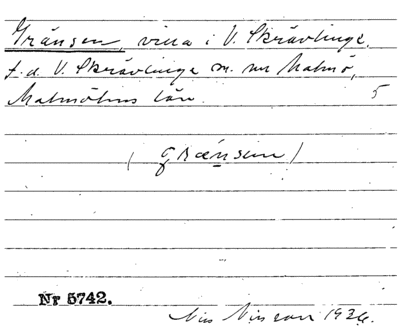 Gränsen, villa i V. Skrävlinge,
f. d. V. Skrävlinge sn. nu Malmö,
Malmöhus län. 5
( gRænsen )
Nr 5742.
Nils Nilsson 1926.